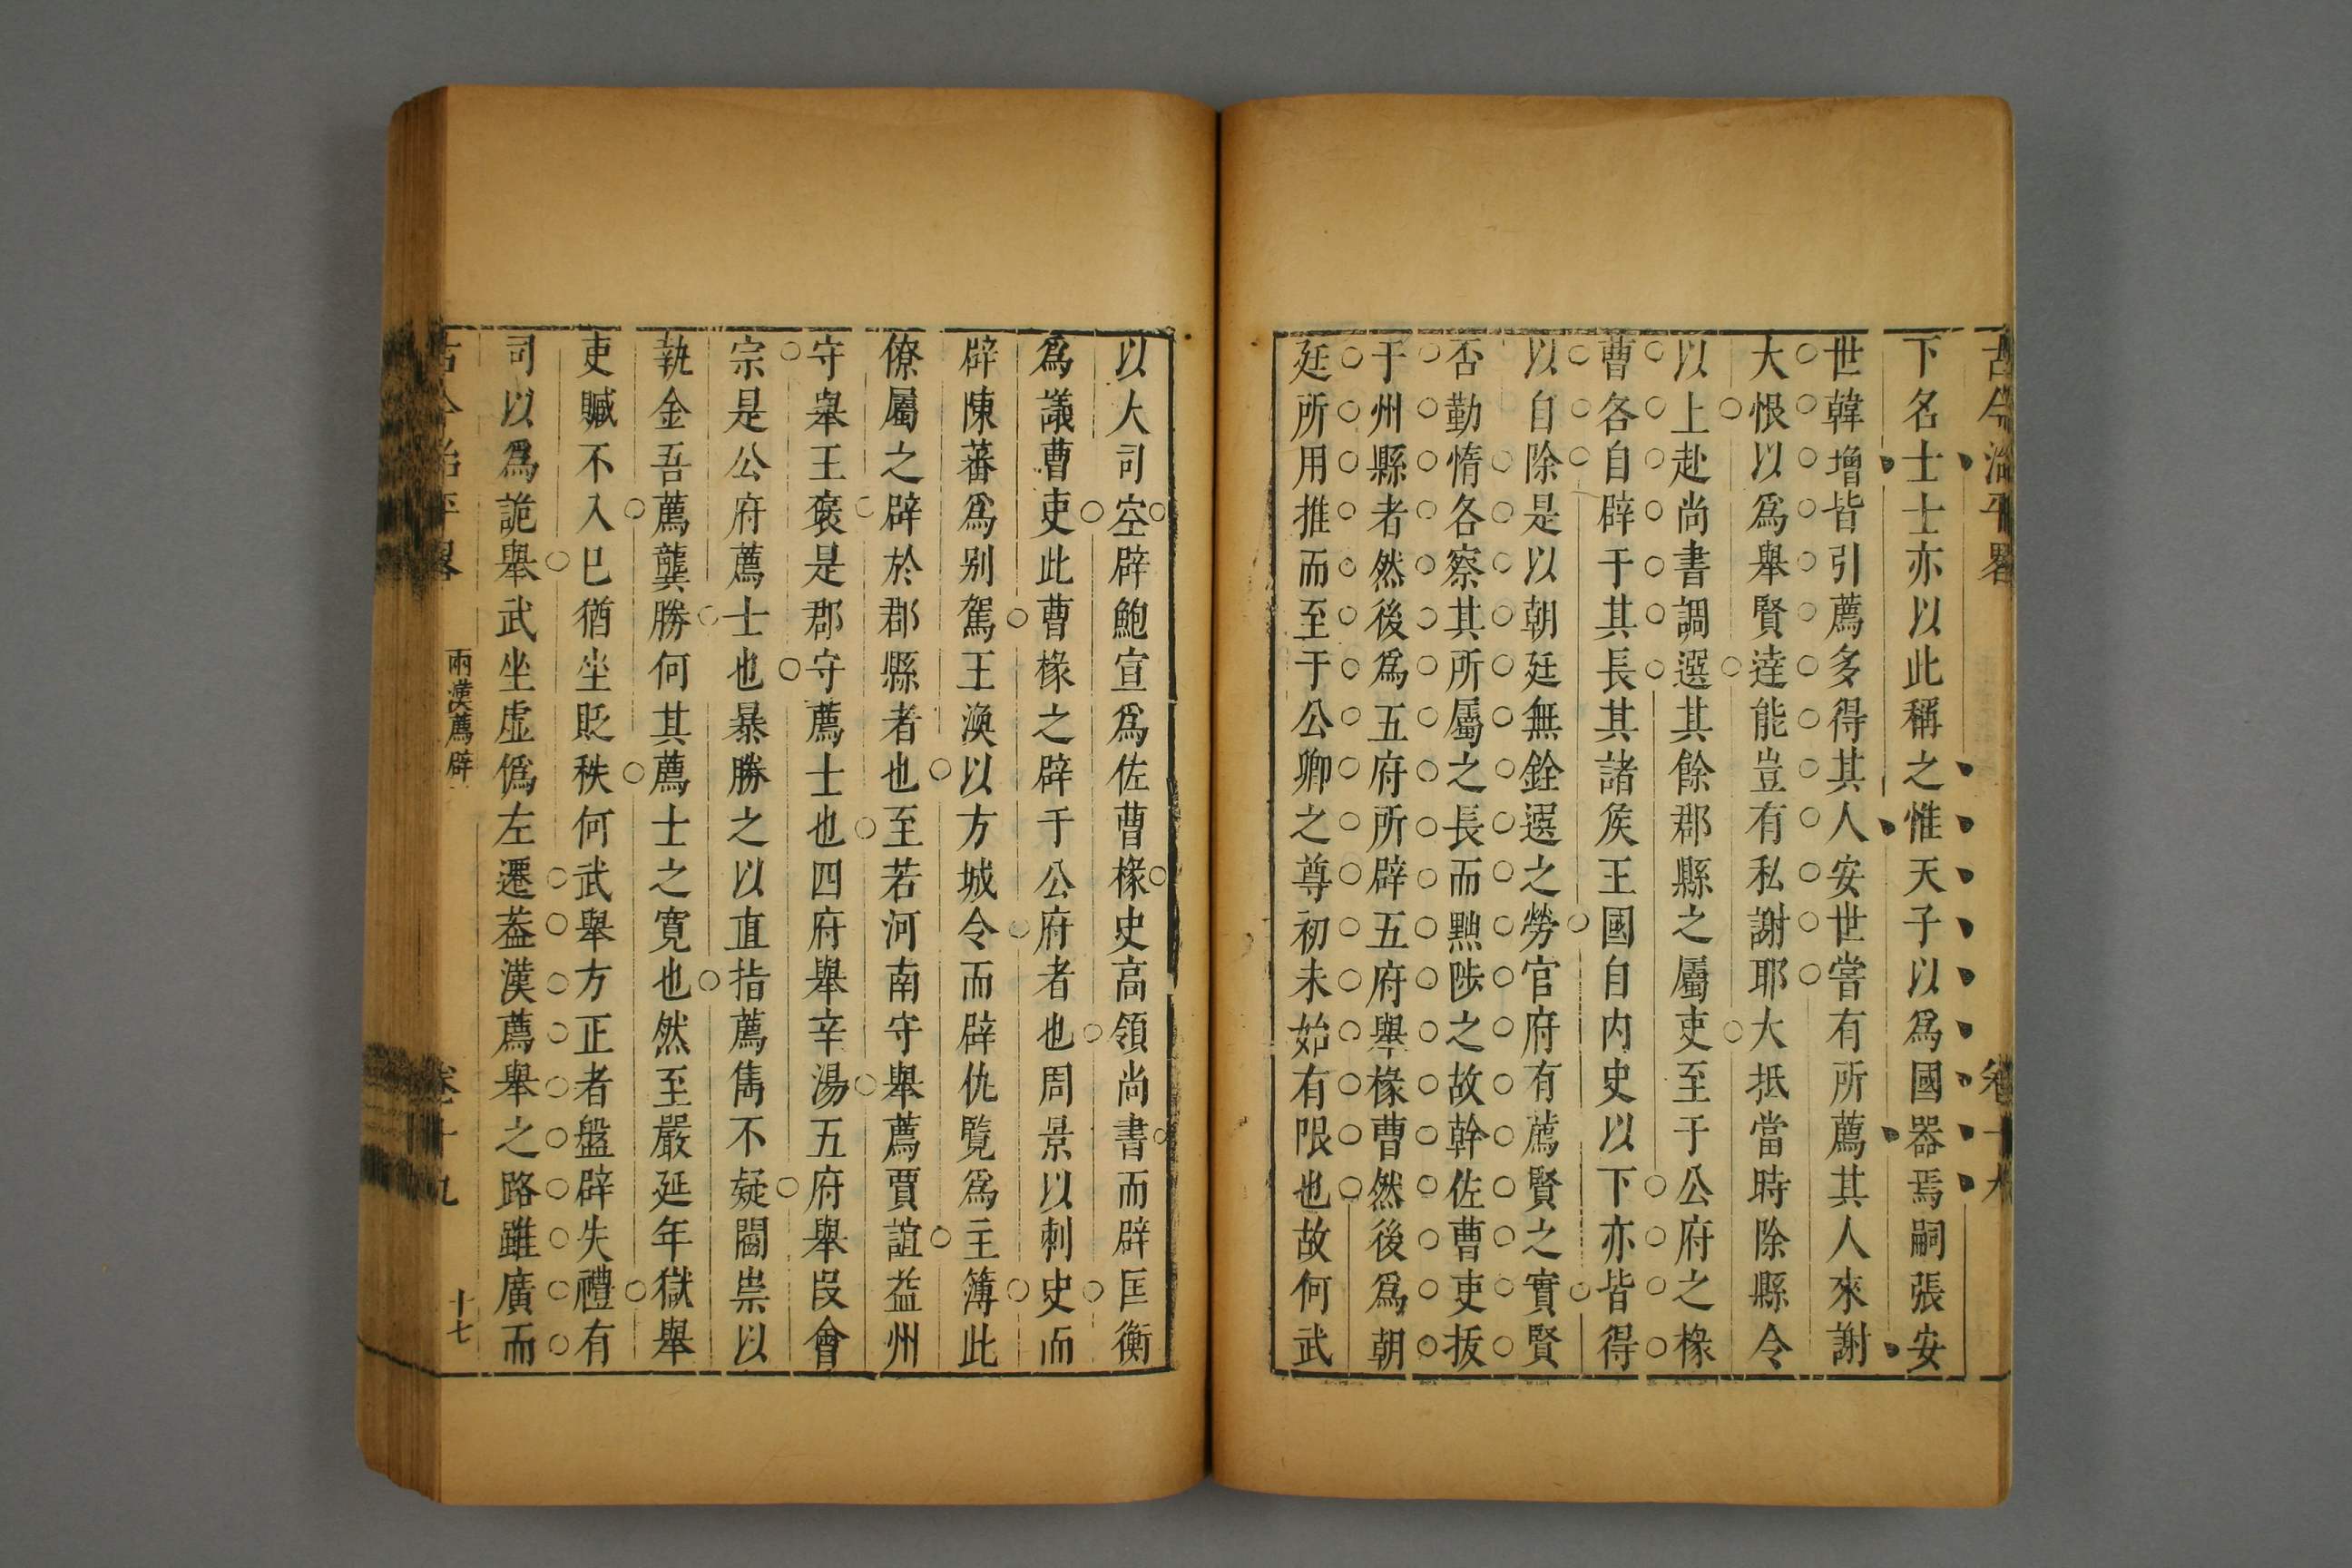 古今治平畧
卷十九
下名士士亦以此稱之惟天子以爲國器焉嗣張安
世韓增皆引薦多得其人安世嘗有所薦其人來謝
大恨以爲舉賢達能豈有私謝耶大抵當時除縣令
以上赴尚書調選其餘郡縣之屬吏至于公府之椽
曹各自辟于其長其諸矦王國自内史以下亦皆得
以自除是以朝廷無銓選之勞官府有薦賢之實賢
否勤惰各察其所屬之長而黜陟之故幹佐曹吏拔
于州縣者然後爲五府所辟五府舉椽曹然後爲朝
廷所用推而至于公卿之尊初未始有限也故何武
以大司空辟鮑宣爲佐曹椽史高領尚書而辟匡衡
爲議曹吏此曹椽之辟于公府者也周景以刺史而
辟陳蕃爲别駕王渙以方城令而辟仇覽爲主簿此
僚屬之辟於郡縣者也至若河南守舉薦賈誼益州
守舉王褒是郡守薦士也四府舉辛湯五府舉段會
宗是公府薦士也暴勝之以直指薦雋不疑閻崇以
執金吾薦龔勝何其薦士之寛也然至嚴延年獄舉
吏贓不入巳猶坐貶秩何武舉方正者盤辟失禮有
司以爲詭舉武坐虚僞左遷葢漢薦舉之路雖廣而
古今治平畧
兩漢薦辟
卷十九
十七